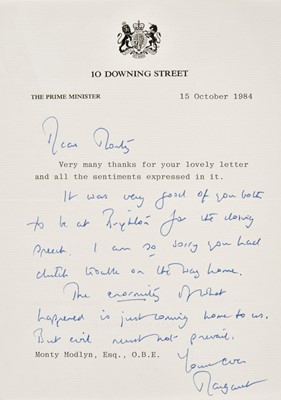 10 DOWNING STREET
THE PRIME MINISTER
15 October 1984
Dear Monty
Very many thanks for your lovely letter
and all the sentiments expressed in it.
It was very good of you both
to be at Brighton for the closing
speech. I am so sorry you had
clutch trouble on the way home.
The enormity of what
happened is just coming home to us.
But evil must not prevail.
Yours ever
Margaret
Monty Modlyn, Esq., O.B.E.